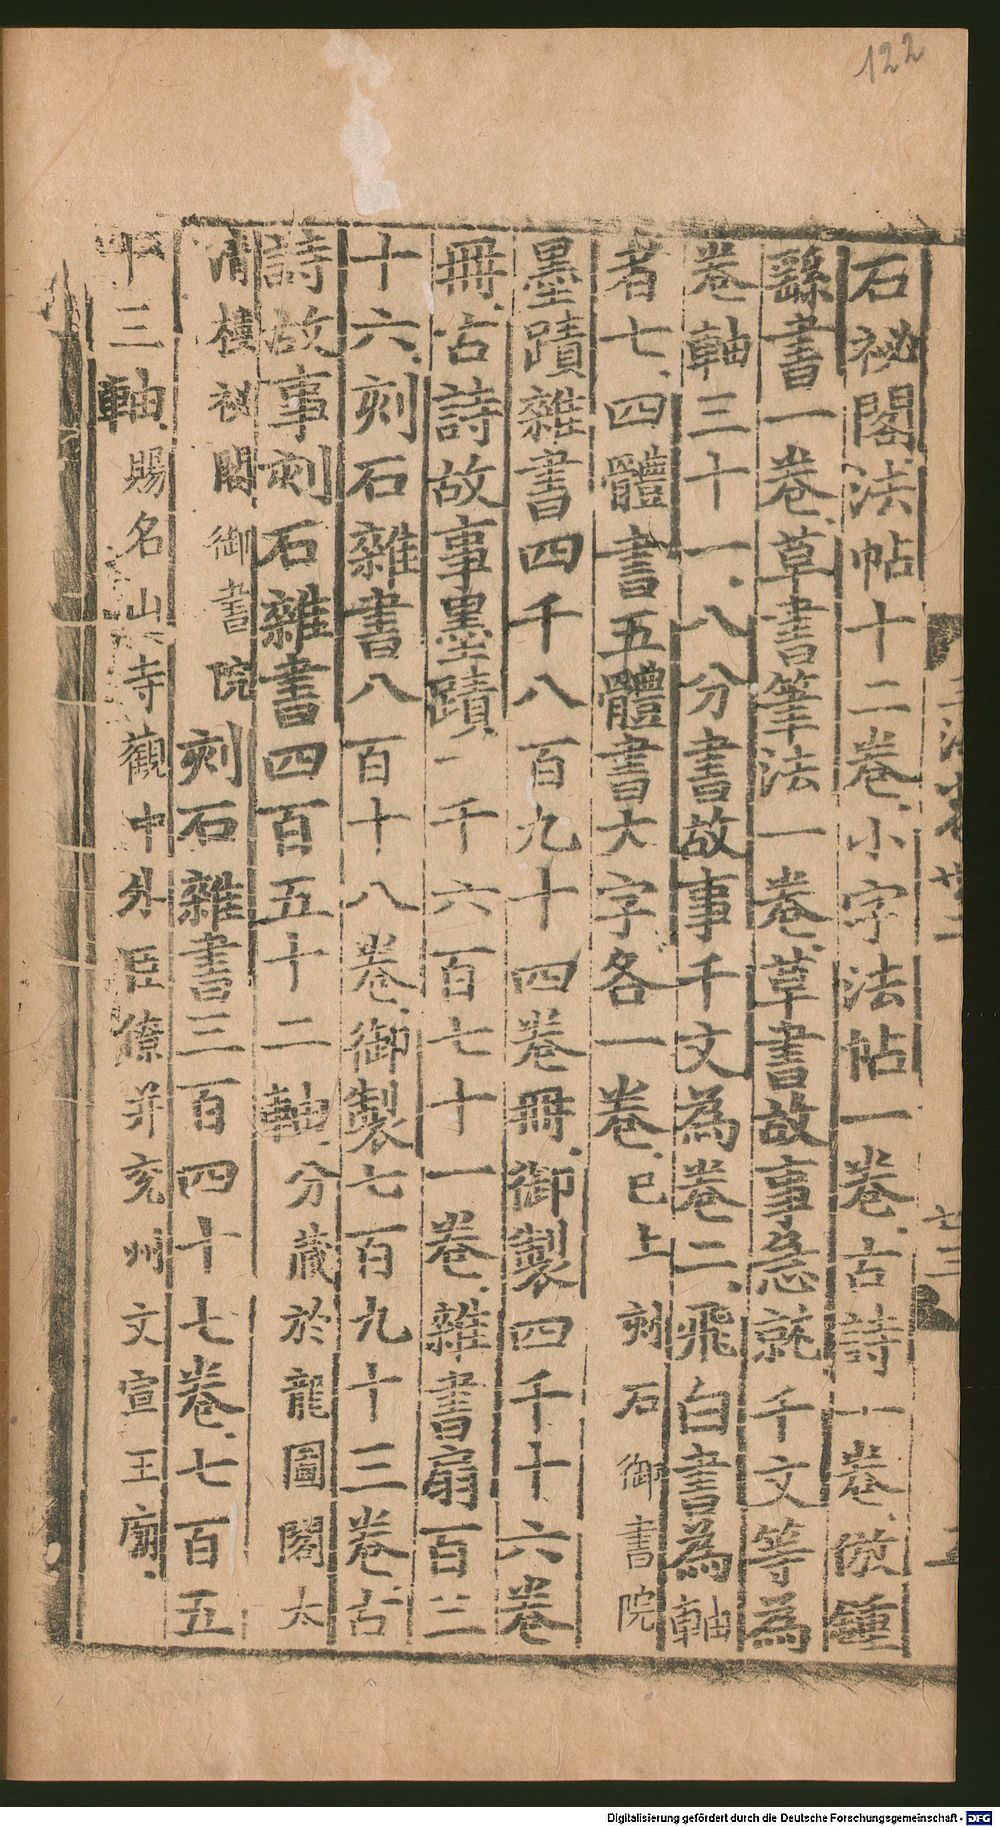 122
石祕閣法帖十二卷小字法帖一卷古詩一卷倣鍾
繇書一卷草書筆法一卷草書故事急就千文等為
卷軸三十一八分書故事千文為卷二飛白書為軸
者七四體書五體書大字各一卷已上刻石御書院
墨蹟雜書四千八百九十四卷冊御製四千十六卷
冊古詩故事墨蹟一千六百七十一卷雜書扇百三
十六刻石雜書八百十八卷御製七百九十三卷古
詩故事刻石雜書四百五十二軸分藏於龍圖閣太
清樓祕閣御書院刻石雜書三百四十七卷七百五
十三軸賜名山寺觀中外臣僚并兖州文宣王廟
Digitalisierung gefördert durch die Deutsche Forschungsgemeinschaft - DFG